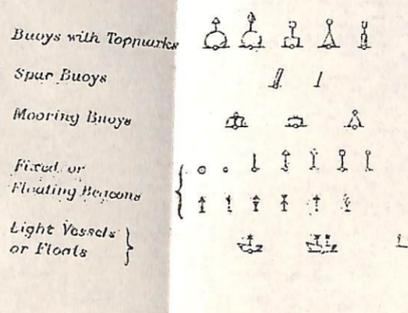 Buoys with Topmarks
Spar Buoys
Mooring Buoys
Fixed or
Floating Beacons
Light Vessels
or Floats